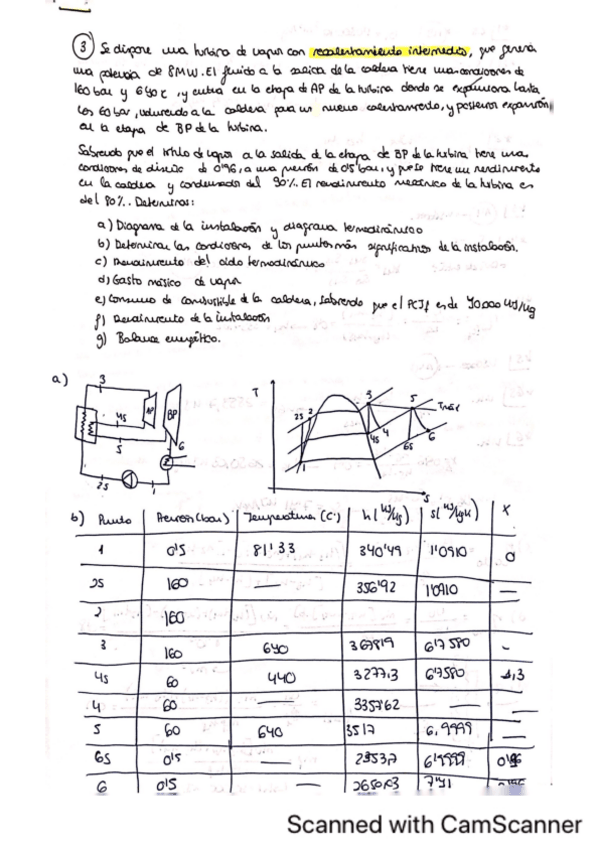 3 Se dispone una turbina de vapor con recalentamiento intermedio, que genera
una potencia de 8MW. El fluido a la salida de la caldera tiene unas condiciones de
160 bar y 640ºC, y entra en la etapa de AP de la turbina donde se expansiona hasta
los 60 bar, volviendo a la caldera para un nuevo calentamiento, y posterior expansión
en la etapa de BP de la turbina.
Sabiendo que el título de vapor a la salida de la etapa de BP de la turbina tiene una
condiciones de diseño de 0'96, a una presión de 0'5 bar, y que se tiene un rendimiento
en la caldera y condensador del 90%. El rendimiento mecánico de la turbina es
del 80%. Determinar:
a) Diagrama de la instalación y diagrama termodinámico
b) Determinar las condiciones de los puntos más significativos de la instalación.
c) Rendimiento del ciclo termodinámico
d) Gasto másico de vapor
e) Consumo de combustible de la caldera, sabiendo que el PCI es de
f) Rendimiento de la instalación
g) Balance energético.
a)
3
AP
BP
4S
5
6
2S
1
T
2S 2
3
5
4S 4
6S
6
1
S
b) Punto Presión (bar) Temperatura (Cº) h (kJ/kg) s (kJ/kgK) X
1 0'5 81'33 340'49 1'0910 0
2S 160 — 356'92 1'0910 —
2 160
3 160 640 6'7580 -
4S 60 440 3277,3 6'7580
4 60 — 3357'62 — —
5 60 640 6,9999 —
6S 0'5 — 6'9999 0'96
6 0'5 —
Scanned with CamScanner